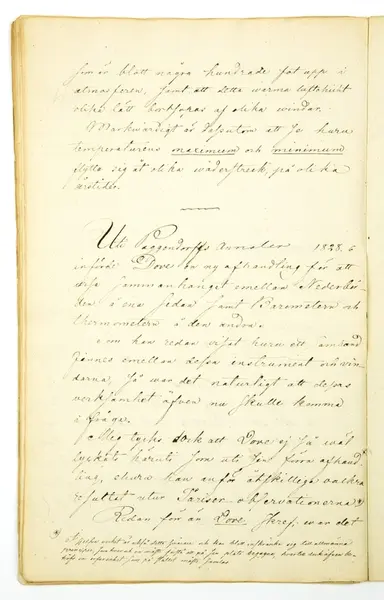 som är blott några hundrade fot upp i
atmosferen, samt att detta varma luftskikt
olika lätt bortföras af olika vindar.
Märkvärdigt är dessutom att se huru
temperaturens maximum och minimum
flytta sig åt olika väderstreck på olika
årstider.
Uti Poggendorffs Annaler 1828. 6
införde Dove en ny afhandling för att
visa sammanhanget emellan Nederbör-
den å ena sedan samt Barometern och
thermometern å den andra.
om han redan visat huru ett samband
finnes emellan dessa instrument och vin-
darna, så war det naturligt att deras
verksamhet äfven nu skulle komma
i fråga.
Mig tycks dock att Dove ej så wäl
lyckats häruti som uti sin förra afhand-
ling, ehuru han anför åtskilliga vackra
resultat utur Pariser-observationerna
Redan för än Dove skref, war det